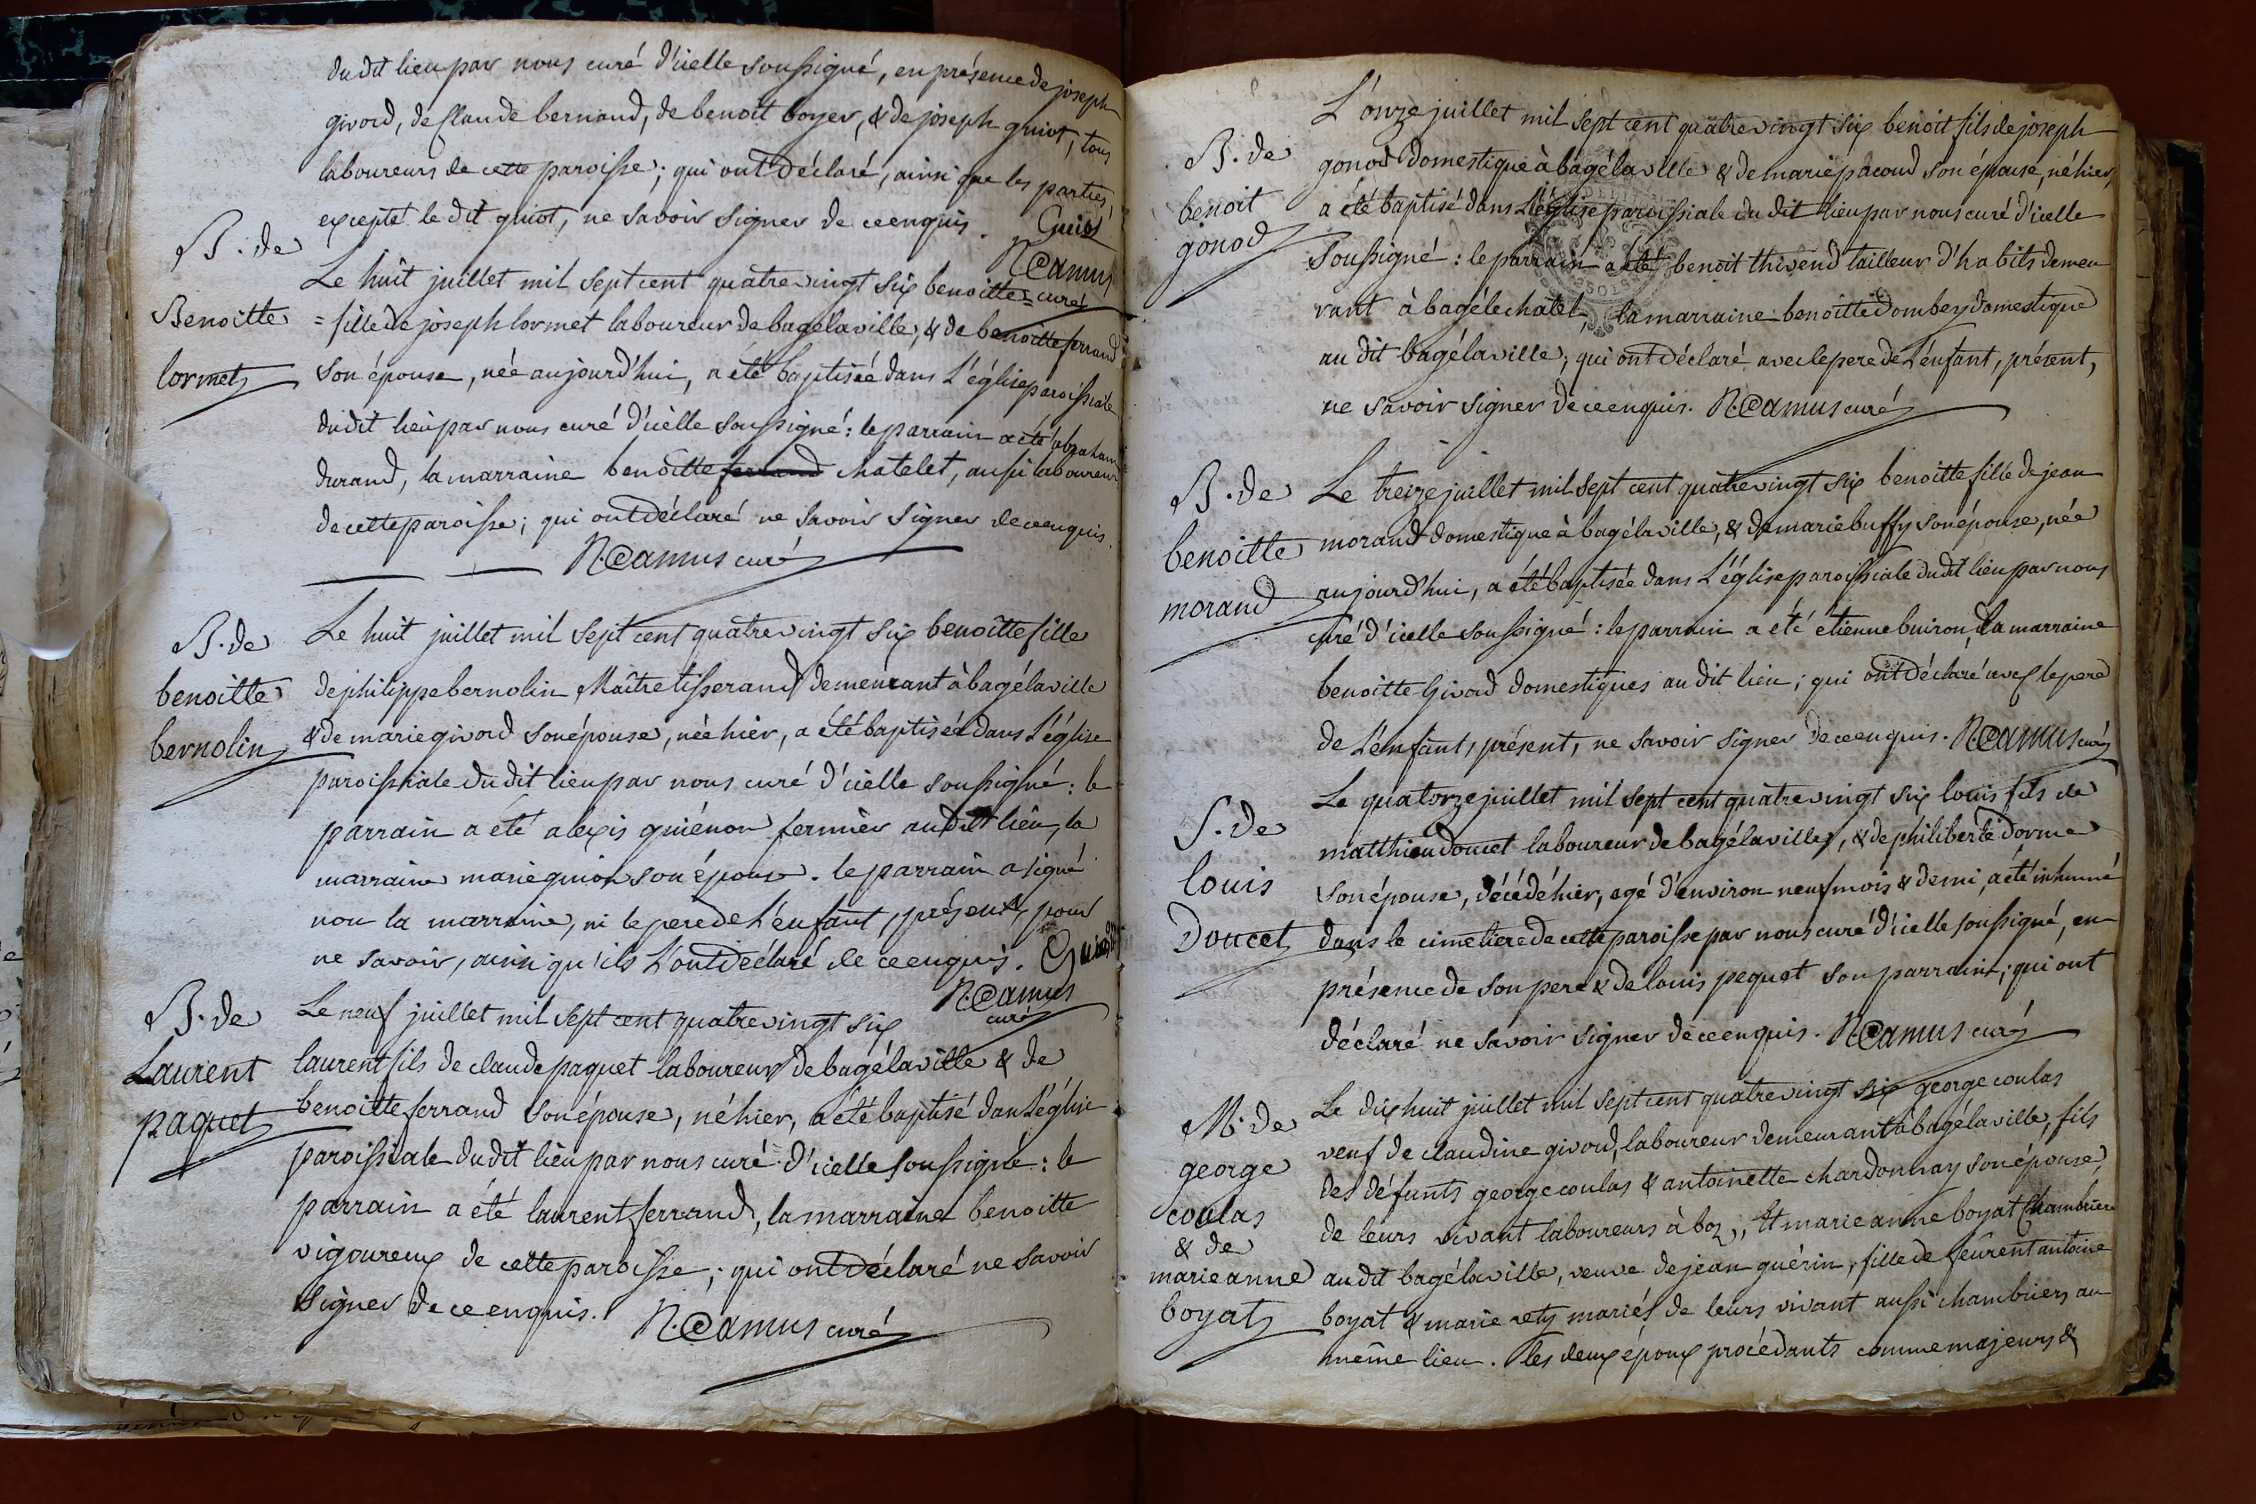 du dit lieu par nous curé d'icelle soussigné, en présence de joseph
givord, de claude bernand, de benoit boyer, & de joseph guiot, tous
laboureurs de cette paroisse; qui ont déclaré, ainsi que les parties,
excepté le dit guiot, ne savoir signer de ce enquis. Guiot
N. Camus
curé
B. de
Benoitte
lormet
Le huit juillet mil sept cent quatre vingt six benoitte=
= fille de joseph lormet laboureur de bagélaville, & de benoitte ferrand
son épouse, née aujourd'hui, a été baptisée dans L'église paroissiale
du dit lieu par nous curé d'icelle soussigné: le parrain a été abraham
durand, la marraine benoitte ferrand chatelet, aussi laboureurs
de cette paroisse; qui ont déclaré ne savoir signer de ce enquis.
N. Camus curé
B. de
benoitte
bernolin
Le huit juillet mil sept cent quatre vingt six benoitte fille
de philippe bernolin Maître tisserand demeurant à bagélaville
& de marie givord son épouse, née hier, a été baptisée dans L'église
paroissiale du dit lieu par nous curé d'icelle soussigné: le
parrain a été alexis guiénon fermier au dit lieu, la
marraine marie guion son épouse. le parrain a signé
non la marraine, ni le pere de L'enfant, présent, pour
ne savoir, ainsi qu'ils L'ont déclaré de ce enquis.
N. Camus
curé
B. de
Laurent
paquet
Le neuf juillet mil sept cent quatre vingt six
laurent fils de claude paquet laboureur de bagélaville & de
benoitte ferrand son épouse, né hier, a été baptisé dans L'église
paroissiale du dit lieu par nous curé d'icelle soussigné: le
parrain a été laurent ferrand, la marraine benoitte
vigoureux de cette paroisse; qui ont déclaré ne savoir
signer de ce enquis.
N. Camus curé
B. de
benoit
gonod
L'onze juillet mil sept cent quatre vingt six benoit fils de joseph
gonod domestique à bagélaville & de marie pacoud son épouse, né hier,
a été baptisé dans L'église paroissiale du dit lieu par nous curé d'icelle
soussigné: le parrain a été benoit thivend tailleur d'habits demeu
rant à bagélechatel, la marraine benoitte dombey domestique
au dit bagélaville; qui ont déclaré avec le pere de L'enfant, présent,
ne savoir signer de ce enquis. N. Camus curé
B. de
benoitte
morand
Le treize juillet mil sept cent quatre vingt six benoitte fille de jean
morand domestique à bagélaville, & de marie buffy son épouse, née
aujourd'hui, a été baptisée dans L'église paroissiale du dit lieu par nous
curé d'icelle soussigné: le parrain a été etienne buiron, la marraine
benoitte givord domestiques au dit lieu; qui ont déclaré avec le pere
de L'enfant, présent, ne savoir signer de ce enquis. N. Camus curé
S. de
louis
Doucet
Le quatorze juillet mil sept cent quatre vingt six louis fils de
matthieu doucet laboureur de bagélaville, & de philiberte dorme
son épouse, décédé hier, agé d'environ neuf mois & demi, a été inhumé
dans le cimetiere de cette paroisse par nous curé d'icelle soussigné, en
présence de son pere & de louis pequet son parrain; qui ont
déclaré ne savoir signer de ce enquis. N. Camus curé
M. de
george
coulas
& de
marie anne
boyat
Le dix huit juillet mil sept cent quatre vingt six george coulas
veuf de claudine givord, laboureur demeurant à bagélaville, fils
des défunts george coulas & antoinette chardonnay son épouse,
de leurs vivant laboureurs à boz, Et marie anne boyat chambriere
au dit bagélaville, veuve de jean guérin, fille de feurent antoine
boyat & marie rety mariés de leurs vivant aussi chambriers au
même lieu. les deux époux procédants comme majeurs &